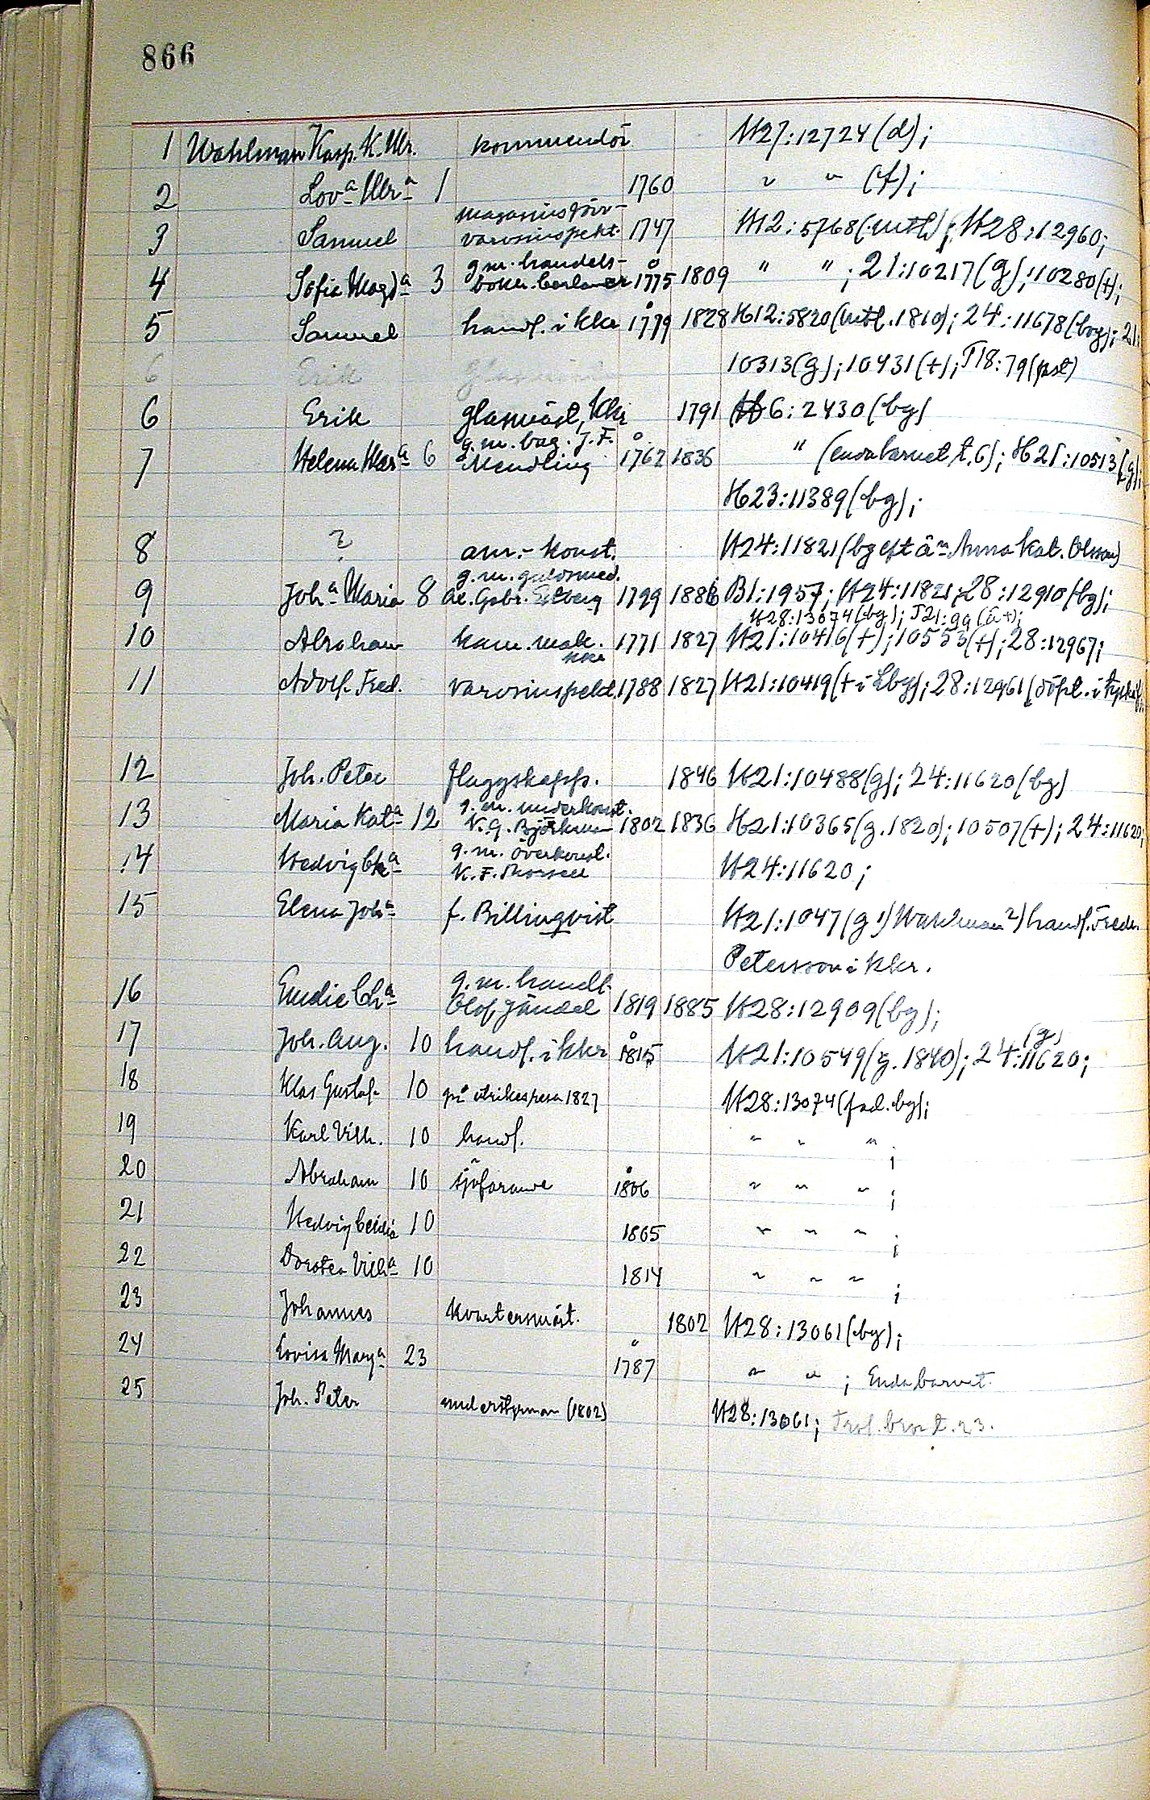 866
1 Wahlman Kasp. K. Ulr. kommendör H27:12724 (d);
2 Lovª Ulrª 1 1760 " " (f);
3 Samuel magasinsförv- varvsinspekt. 1747 H12:5768 (mtl); H28:12960;
4 Sofia Magdª 3 g.m. handels- bokh. 1775 1809 " " ; 21:10217 (g); 10280 (+);
5 Samuel handl. i kkr 1779 1828 H12:5820 (mtl. 1810); 24:11678 (bg); 21:
6 Erik 10313 (g); 10431 (+); T18:79 (pst)
6 Erik glasmäst, kkr 1791 H6:2430 (bg)
7 Helena Marª 6 g.m. bag. J.F. Mendling 1762 1835 " (enda barnet t. 6); H21:10513 (g);
H23:11389 (bg);
8 ? am:-konst. H24:11821 (bg eft än Anna Kat. Olsson)
9 Johª Maria 8 g.m. guldsmed. 1799 1886 B1:1957; H24:11821; 28:12910 (bg);
H28:13074 (bg); T21:99 (ä+);
10 Abraham kam. mak. kkr 1771 1827 H21:10416 (+); 10553 (+); 28:12967;
11 Adolf Fred. varvsinspekt. 1788 1827 H21:10419 (+ i Lbg); 28:12961 (döpt. i
12 Joh. Peter flaggskepp. 1846 H21:10488 (g); 24:11620 (bg)
13 Maria Katª 12 g.m. underkonst. N.G. Björkman 1802 1836 H21:10365 (g. 1820); 10507 (+); 24:11620;
14 Hedvig Chª g.m. överkonst. K.F. H24:11620;
15 Elena Johª f. Billinqvist H21:1047 (g 1) Wahlman 2) handl. Fredr.
Petersson i kkr.
16 Emelie Chª g.m. handl. Olof Jändel 1819 1885 H28:12909 (bg);
17 Joh. Aug. 10 handl. i kkr 1815 H21:10549 (g. 1840); 24:11620 (g);
18 Klas Gustaf 10 på utrikes resa 1827 H28:13074 (fad. bg);
19 Karl Vilh. 10 handl. " " " ;
20 Abraham 10 sjöfarande 1806 " " " ;
21 Hedvig 10 1805 " " " ;
22 Dorotea Vilhª 10 1814 " " " ;
23 Johannes kvartersmäst. 1802 H28:13061 (bg);
24 Lovisa Margª 23 1787 " " ; Enda barnet.
25 Joh. Peter understyrman (1802) H28:13061; Trol. bror t. 23.